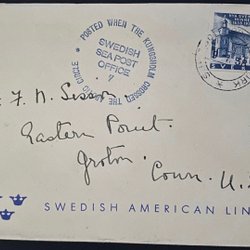 POSTED WHEN THE KUNGSHOLM CROSSED THE ARCTIC CIRCLE
SWEDISH
SEA POST
OFFICE
7
F. N. Sisson
Eastern Point.
Groton.
Conn. U.
SWEDISH AMERICAN LIN